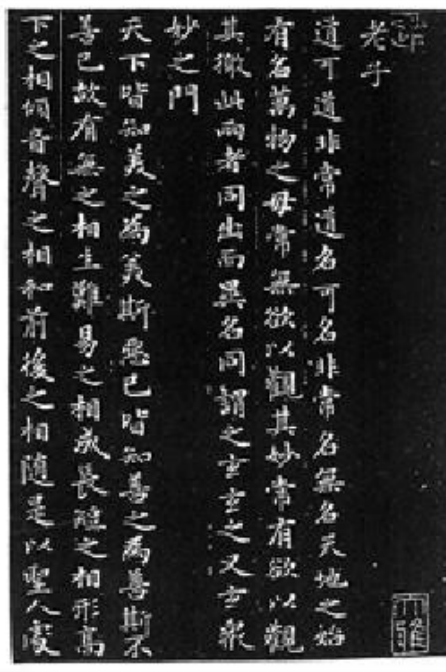 老子
道可道非常道名可名非常名無名天地之始
有名萬物之母常無欲以觀其妙常有欲以觀
其徼此兩者同出而異名同謂之玄玄之又玄衆
妙之門
天下皆知美之為美斯惡已皆知善之為善斯不
善已故有無之相生難易之相成長短之相形高
下之相傾音聲之相和前後之相隨是以聖人處